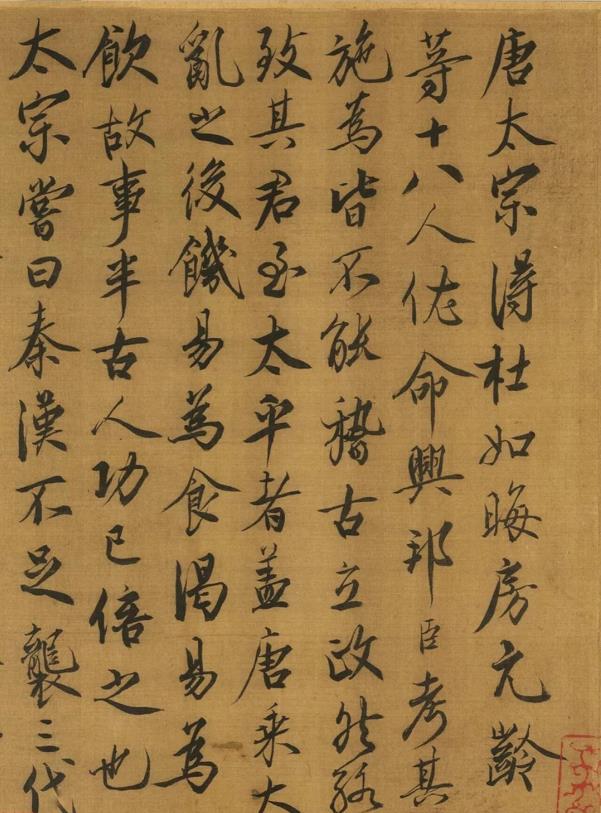 唐太宗得杜如晦房元齡
等十八人佐命興邦臣考其
施為皆不能稽古立政然
致其君至太平者蓋唐乘大
亂之後饑易為食渴易為
飲故事半古人功已倍之也
太宗嘗曰秦漢不足襲三代